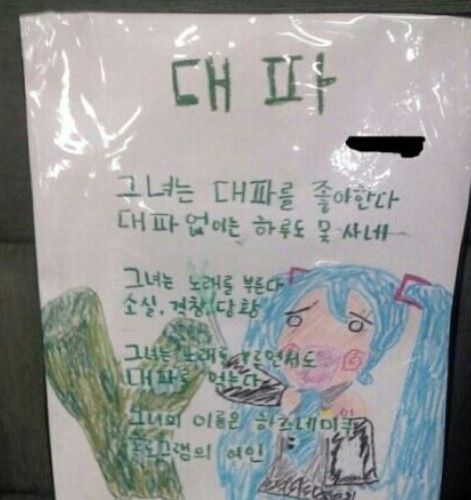 대파
그녀는 대파를 좋아한다
대파 없이는 하루도 못 사네
그녀는 노래를 부른다
소실, 격창, 당황
그녀는 노래를 부르면서도
대파를 먹는다
그녀의 이름은 하츠네미쿠
프로그램의 여인